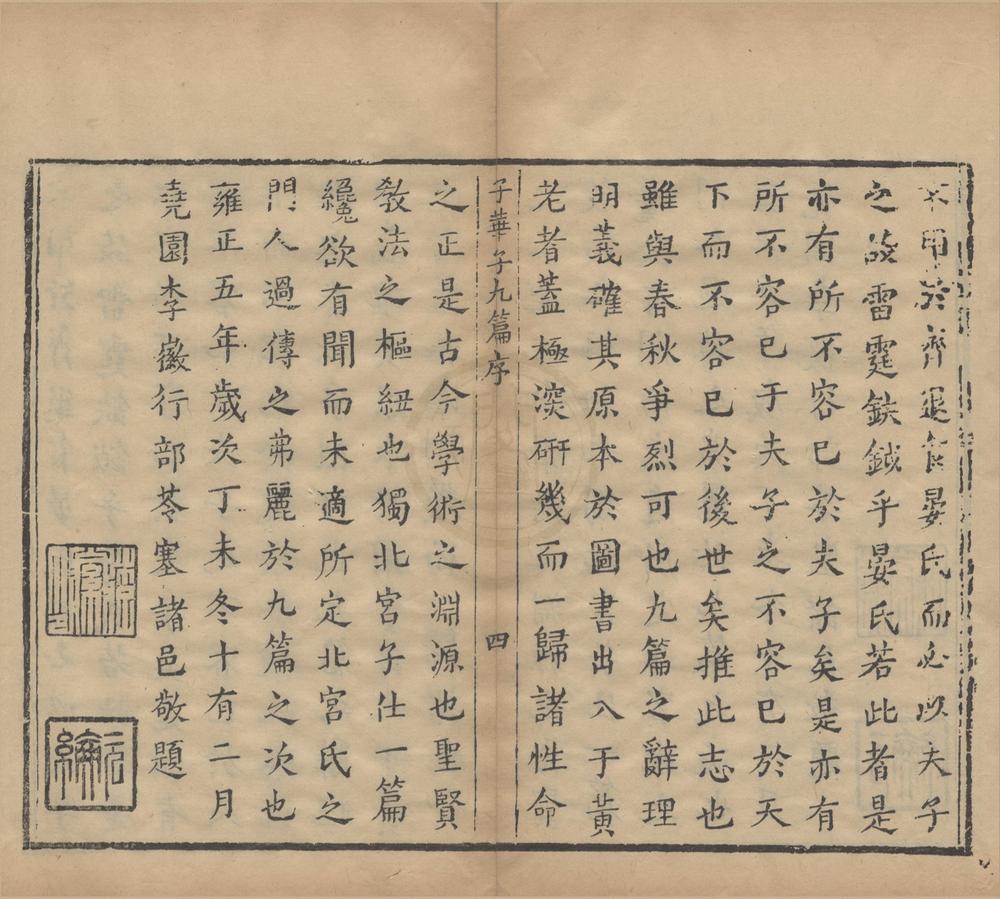 不用於齊退食晏氏而必以夫子
之故雷霆鈇鉞乎晏氏若此者是
亦有所不容已於夫子矣是亦有
所不容已于夫子之不容已於天
下而不容已於後世矣推此志也
雖與春秋爭烈可也九篇之辭理
明義確其原本於圖書出入于黃
老者蓋極深研幾而一歸諸性命
子華子九篇序 四
之正是古今學術之淵源也聖賢
教法之樞紐也獨北宮子仕一篇
纔欲有聞而未適所定北宮氏之
門人過傳之弗麗於九篇之次也
雍正五年歲次丁未冬十有二月
堯園李徽行部苓塞諸邑敬題